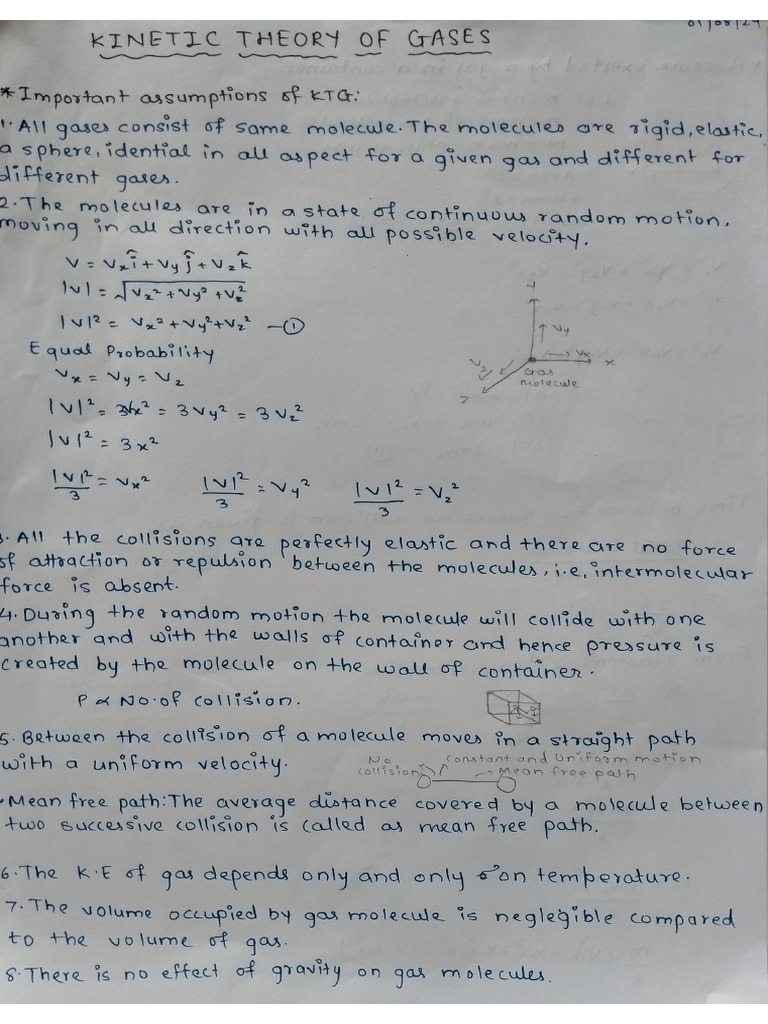 01/08/24
KINETIC THEORY OF GASES
* Important assumptions of KTG:
1. All gases consist of same molecule. The molecules are rigid, elastic,
a sphere, idential in all aspect for a given gas and different for
different gases.
2. The molecules are in a state of continuous random motion,
moving in all direction with all possible velocity.
V = Vx î + Vy ĵ + Vz k̂
|V| = √Vx² + Vy² + Vz²
|V|² = Vx² + Vy² + Vz² — ①
Equal Probability
Vx = Vy = Vz
|V|² = 3x² = 3Vy² = 3Vz²
|V|² = 3x²
|V|²/3 = Vx² |V|²/3 = Vy² |V|²/3 = Vz²
Y
Vy
Vx
X
Vz
Z
Gas
molecule
3. All the collisions are perfectly elastic and there are no force
of attraction or repulsion between the molecules, i.e, intermolecular
force is absent.
4. During the random motion the molecule will collide with one
another and with the walls of container and hence pressure is
created by the molecule on the wall of container.
P ∝ No. of collision.
5. Between the collision of a molecule moves in a straight path
with a uniform velocity.
No
collision
constant and Uniform motion
→ Mean free path
• Mean free path: The average distance covered by a molecule between
two successive collision is called as mean free path.
6. The K.E of gas depends only and only on temperature.
7. The volume occupied by gas molecule is neglegible compared
to the volume of gas.
8. There is no effect of gravity on gas molecules.